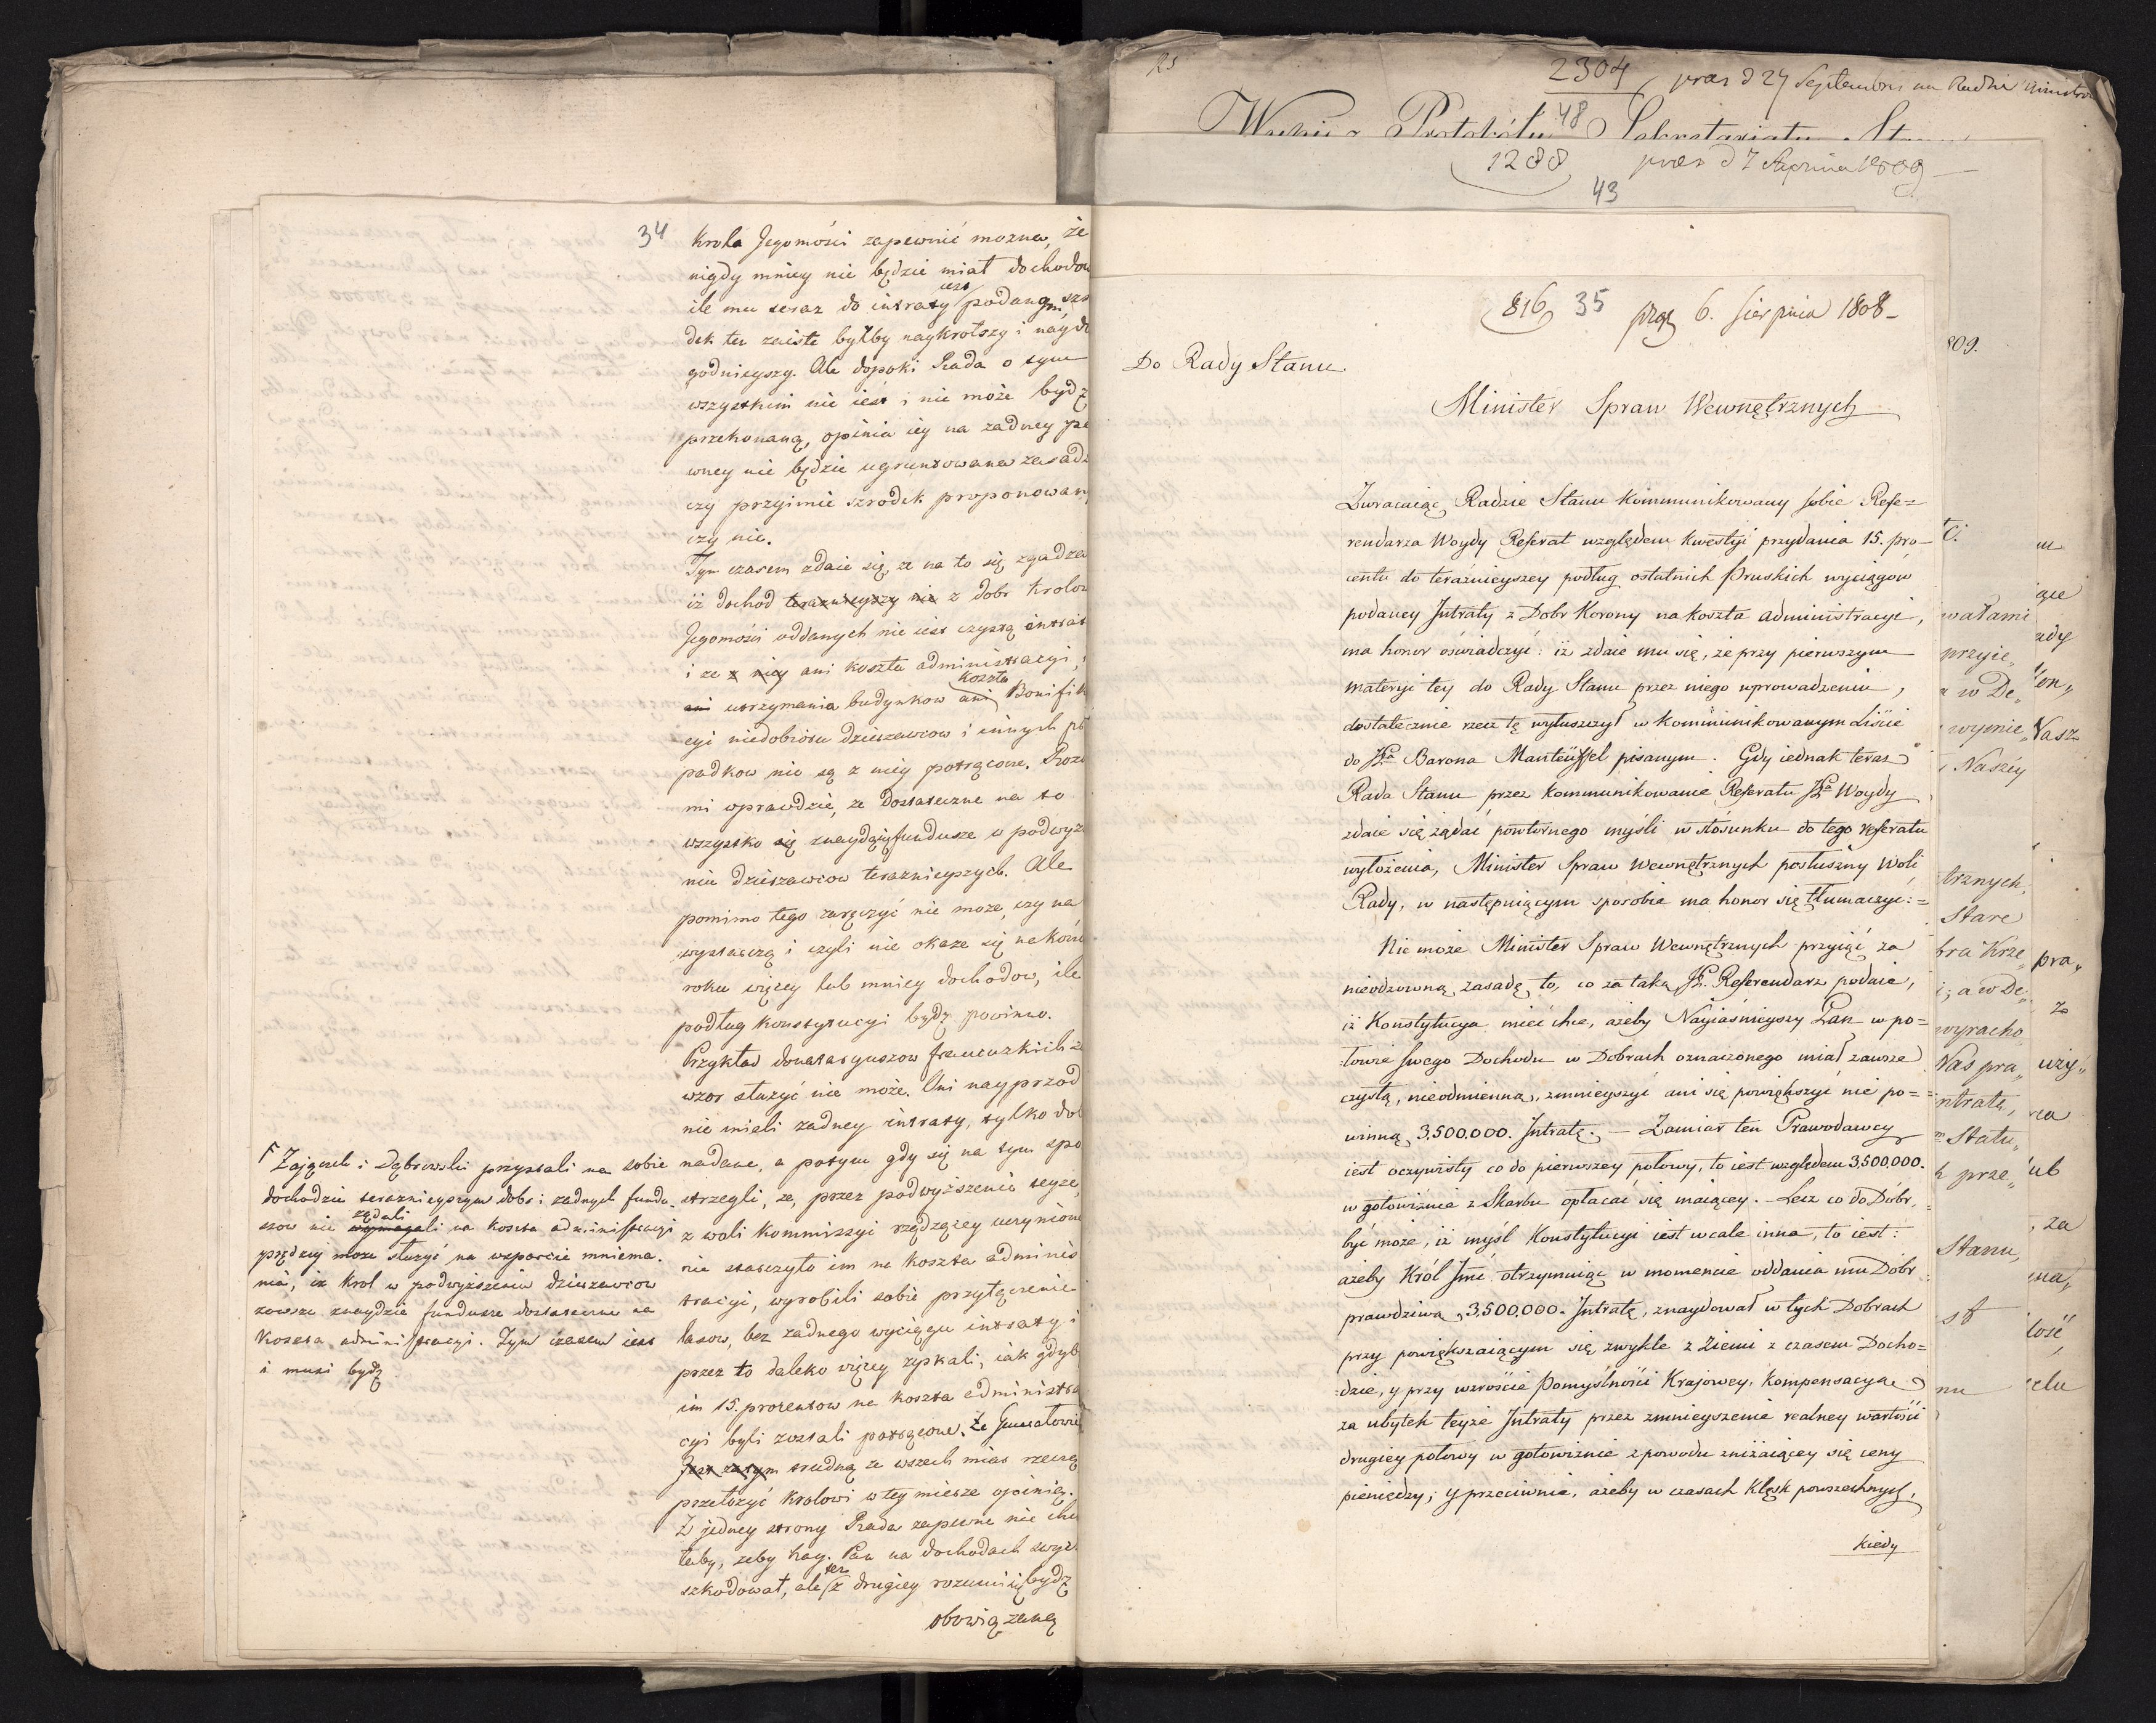 34
Krola Jegomości zapewnić mozna, że
nigdy mniey nie będzie miał dochodow
ile mu teraz do intraty iest podanym,
dek ten zaiste byłby naykrotszy i nay
godnieyszy. Ale dopoki Rada o tym
wszystkim nie iest i nie może bydź
przekonaną, opinia iey na zadney pe
wney nie będzie ugruntowana zasad
czy przyimie szrodek proponowan
czy nie.
Tym czasem zdaie się, ze na to się zgadza
iż dochod terazneyszy nie z dobr Krolow
Jegomości oddanych nie iest czystą intrat
i ze z niey ani koszta administracyi,
ani utrzymania budynkow ani koszta Bonifik
cyi niedobioru dzierzawcow i innych
padkow nie są z niey potrącone. Rozu
mi wprawdzie, ze dostateczne na to
wszystko się znaydą fundusze w podwyz
niu dzierzawcow teraznieyszych. Ale
pomimo tego zaręczyć nie moze, czy na
wystarczą i czyli nie okaze się na końcu
roku więcey lub mniey dochodow, ile
podług konstytucyi bydź powinno.
Przykład donataryuszow francuzkich za
wzor służyć nie może. Oni nayprzod
nie mieli zadney intraty, tylko dob
nadane, a potym gdy się na tym spo
strzegli, ze, przez podwyższenie teyze,
z woli Kommissyi rządzącey uczynione
nie starczyło im na koszta adminis
tracyi, wyrobili sobie przyłączenie
lasow, bez zadnego wyciągu intraty i
przez to daleko więcey zyskali, iak gdyb
im 15. procentow na koszta administra
cyi byli zostali potrącone. Ze Generałowie
Jest zatym trudną ze wszech miar rzeczą
przełożyć Krolowi w tey mierze opinią.
Z jedney strony Rada zapewne nie chc
łaby, zeby Nay. Pan na dochodach swych
szkodował, ale tez z drugiey rozumie bydź
obowiązaną
Zajączek i Dąbrowski przystali na sobie
dochodzie teraznieyszym dobr i zadnych fundu
szow nie wymagali żądali na koszta administracyi
prędzey moze służyć na wsparcie mniema
nia, iz Krol w podwyższeniu dzierzawcow
zawsze znaydzie fundusze dostateczne na
Koszta administracyi. Tym czasem iest
i musi bydź
25
2304
48
1288
43
praes d 7 Aprilis 1809
816 35 praes 6. Sierpnia 1808
Do Rady Stanu
Minister Spraw Wewnętrznych
Zwracaiąc Radzie Stanu kommunikowany sobie Refe=
rendarza Woydy Referat względem kwestyi przydania 15. pro=
centu do teraźnieyszey podług ostatnich Pruskich wyciągow
podaney Intraty z Dobr Korony na koszta administracyi,
ma honor oświadczyć: iż zdaie mu się, że przy pierwszym
materyi tey do Rady Stanu przez niego wprowadzeniu,
dostatecznie rzecz tę wyłuszczył w kommunikowanym Liście
do JP. Barona Manteüffel pisanym. Gdy iednak teraz
Rada Stanu przez kommunikowanie Referatu JP. Woydy
zdaie się żądać powtornego myśli w stosunku do tego referatu
wyłożenia, Minister Spraw Wewnętrznych posłuszny Woli
Rady, w następuiącym sposobie ma honor się tłumaczyć:=
Nie może Minister Spraw Wewnętrznych przyiąć za
nieodzowną zasadę to, co za taką JP. Referendarz podaie,
iż Konstytucya mieć chce, ażeby Nayiaśnieyszy Pan w po=
łowie swego Dochodu w Dobrach oznaczonego miał zawsze
czystą, nieodmienną, zmnieyszyć ani się powiększyć nie po=
winną, 3,500,000. Intratę. — Zamiar ten Prawodawcy
iest oczywisty co do pierwszey połowy, to iest względem 3,500,000.
w gotowiźnie z Skarbu opłacać się maiącey. — Lecz co do Dobr,
być może, iż myśl Konstytucyi iest wcale inna, to iest:
ażeby Król Jmć otrzymuiąc w momencie oddania mu Dobr
prawdziwą 3,500,000. Intratę, znaydował w tych Dobrach
przy powiększaiącym się zwykle z Ziemi z czasem Docho=
dzie, y przy wzroście Pomyślności Krajowey, kompensacyą
za ubytek teyże Intraty przez zmnieyszenie realney wartości
drugiey połowy w gotowiźnie z powodu zniżaiącey się ceny
pieniędzy; y przeciwnie, ażeby w czasach Klęsk powszechnych,
kiedy
809.